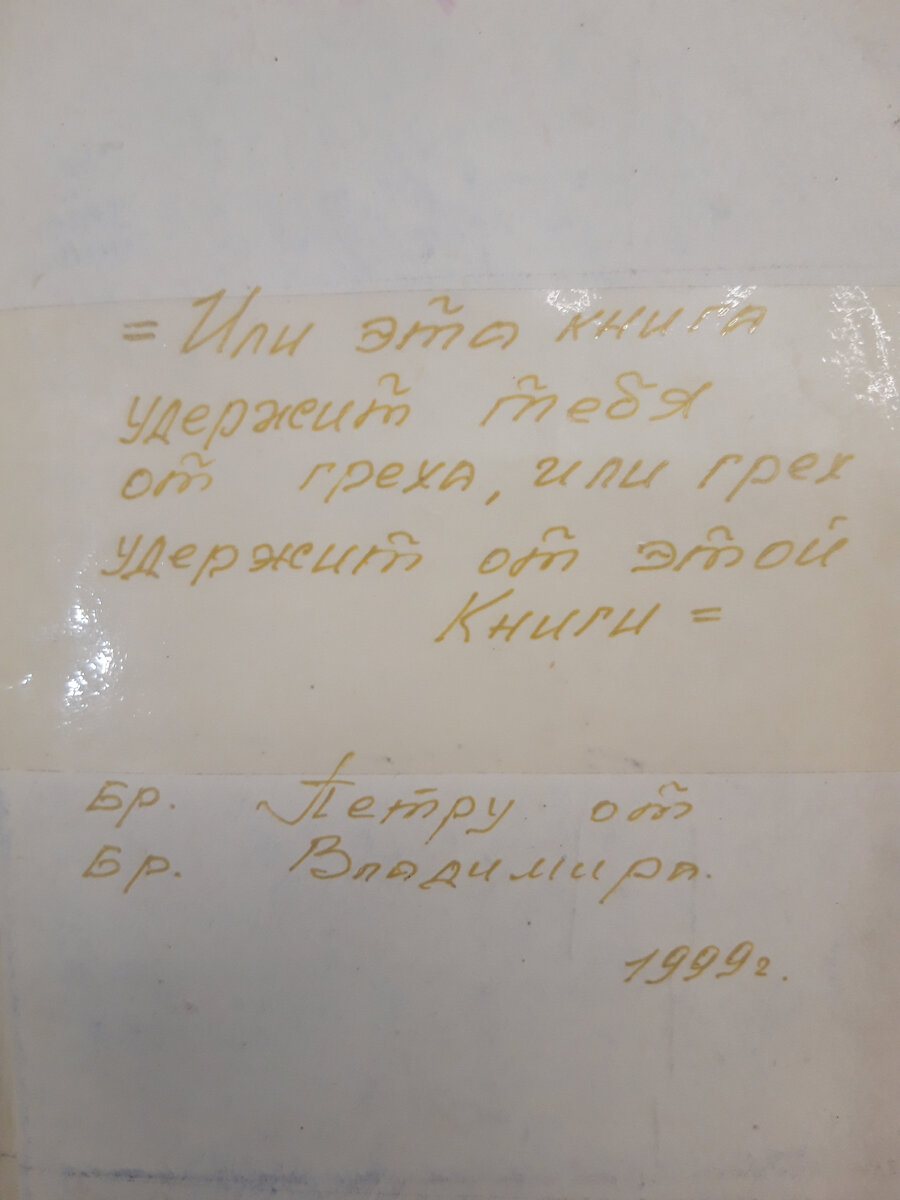 = Или эта книга
удержит тебя
от греха, или грех
удержит от этой
Книги =
Бр. Петру от
Бр. Владимира.
1999г.